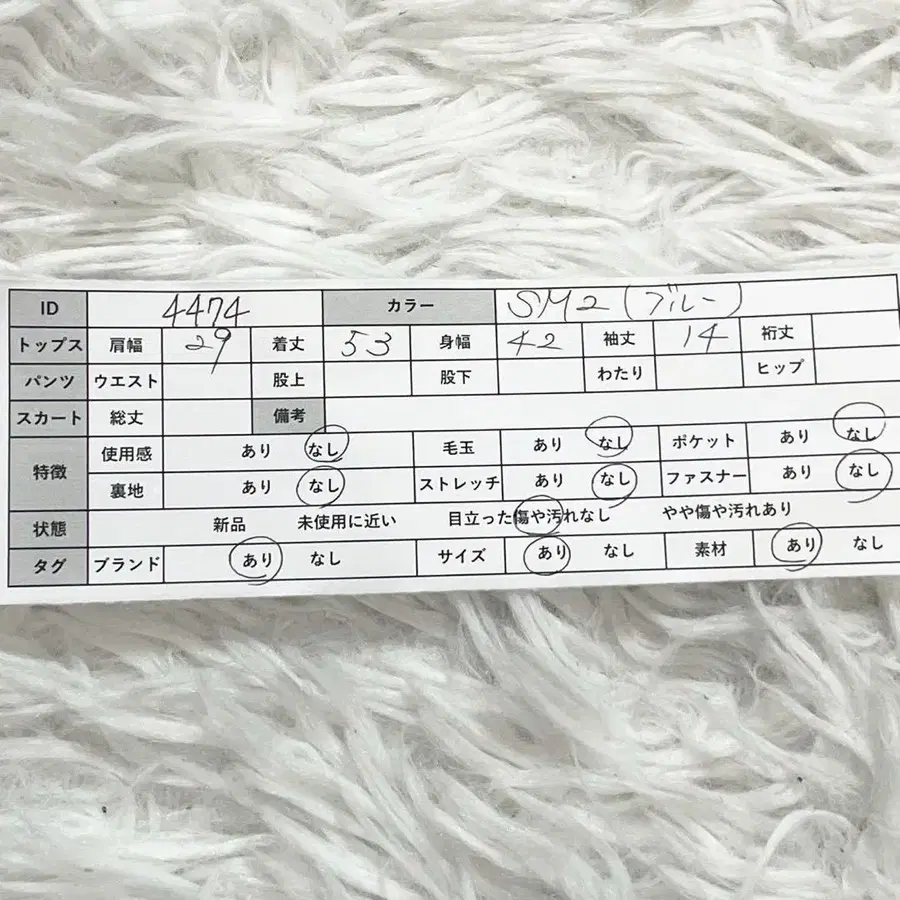 ID 4474 カラー SM2(ブルー)
トップス 肩幅 29 着丈 53 身幅 42 袖丈 14 裄丈
パンツ ウエスト 股上 股下 わたり ヒップ
スカート 総丈 備考
特徴 使用感 あり なし 毛玉 あり なし ポケット あり なし
裏地 あり なし ストレッチ あり なし ファスナー あり なし
状態 新品 未使用に近い 目立った傷や汚れなし やや傷や汚れあり
タグ ブランド あり なし サイズ あり なし 素材 あり なし